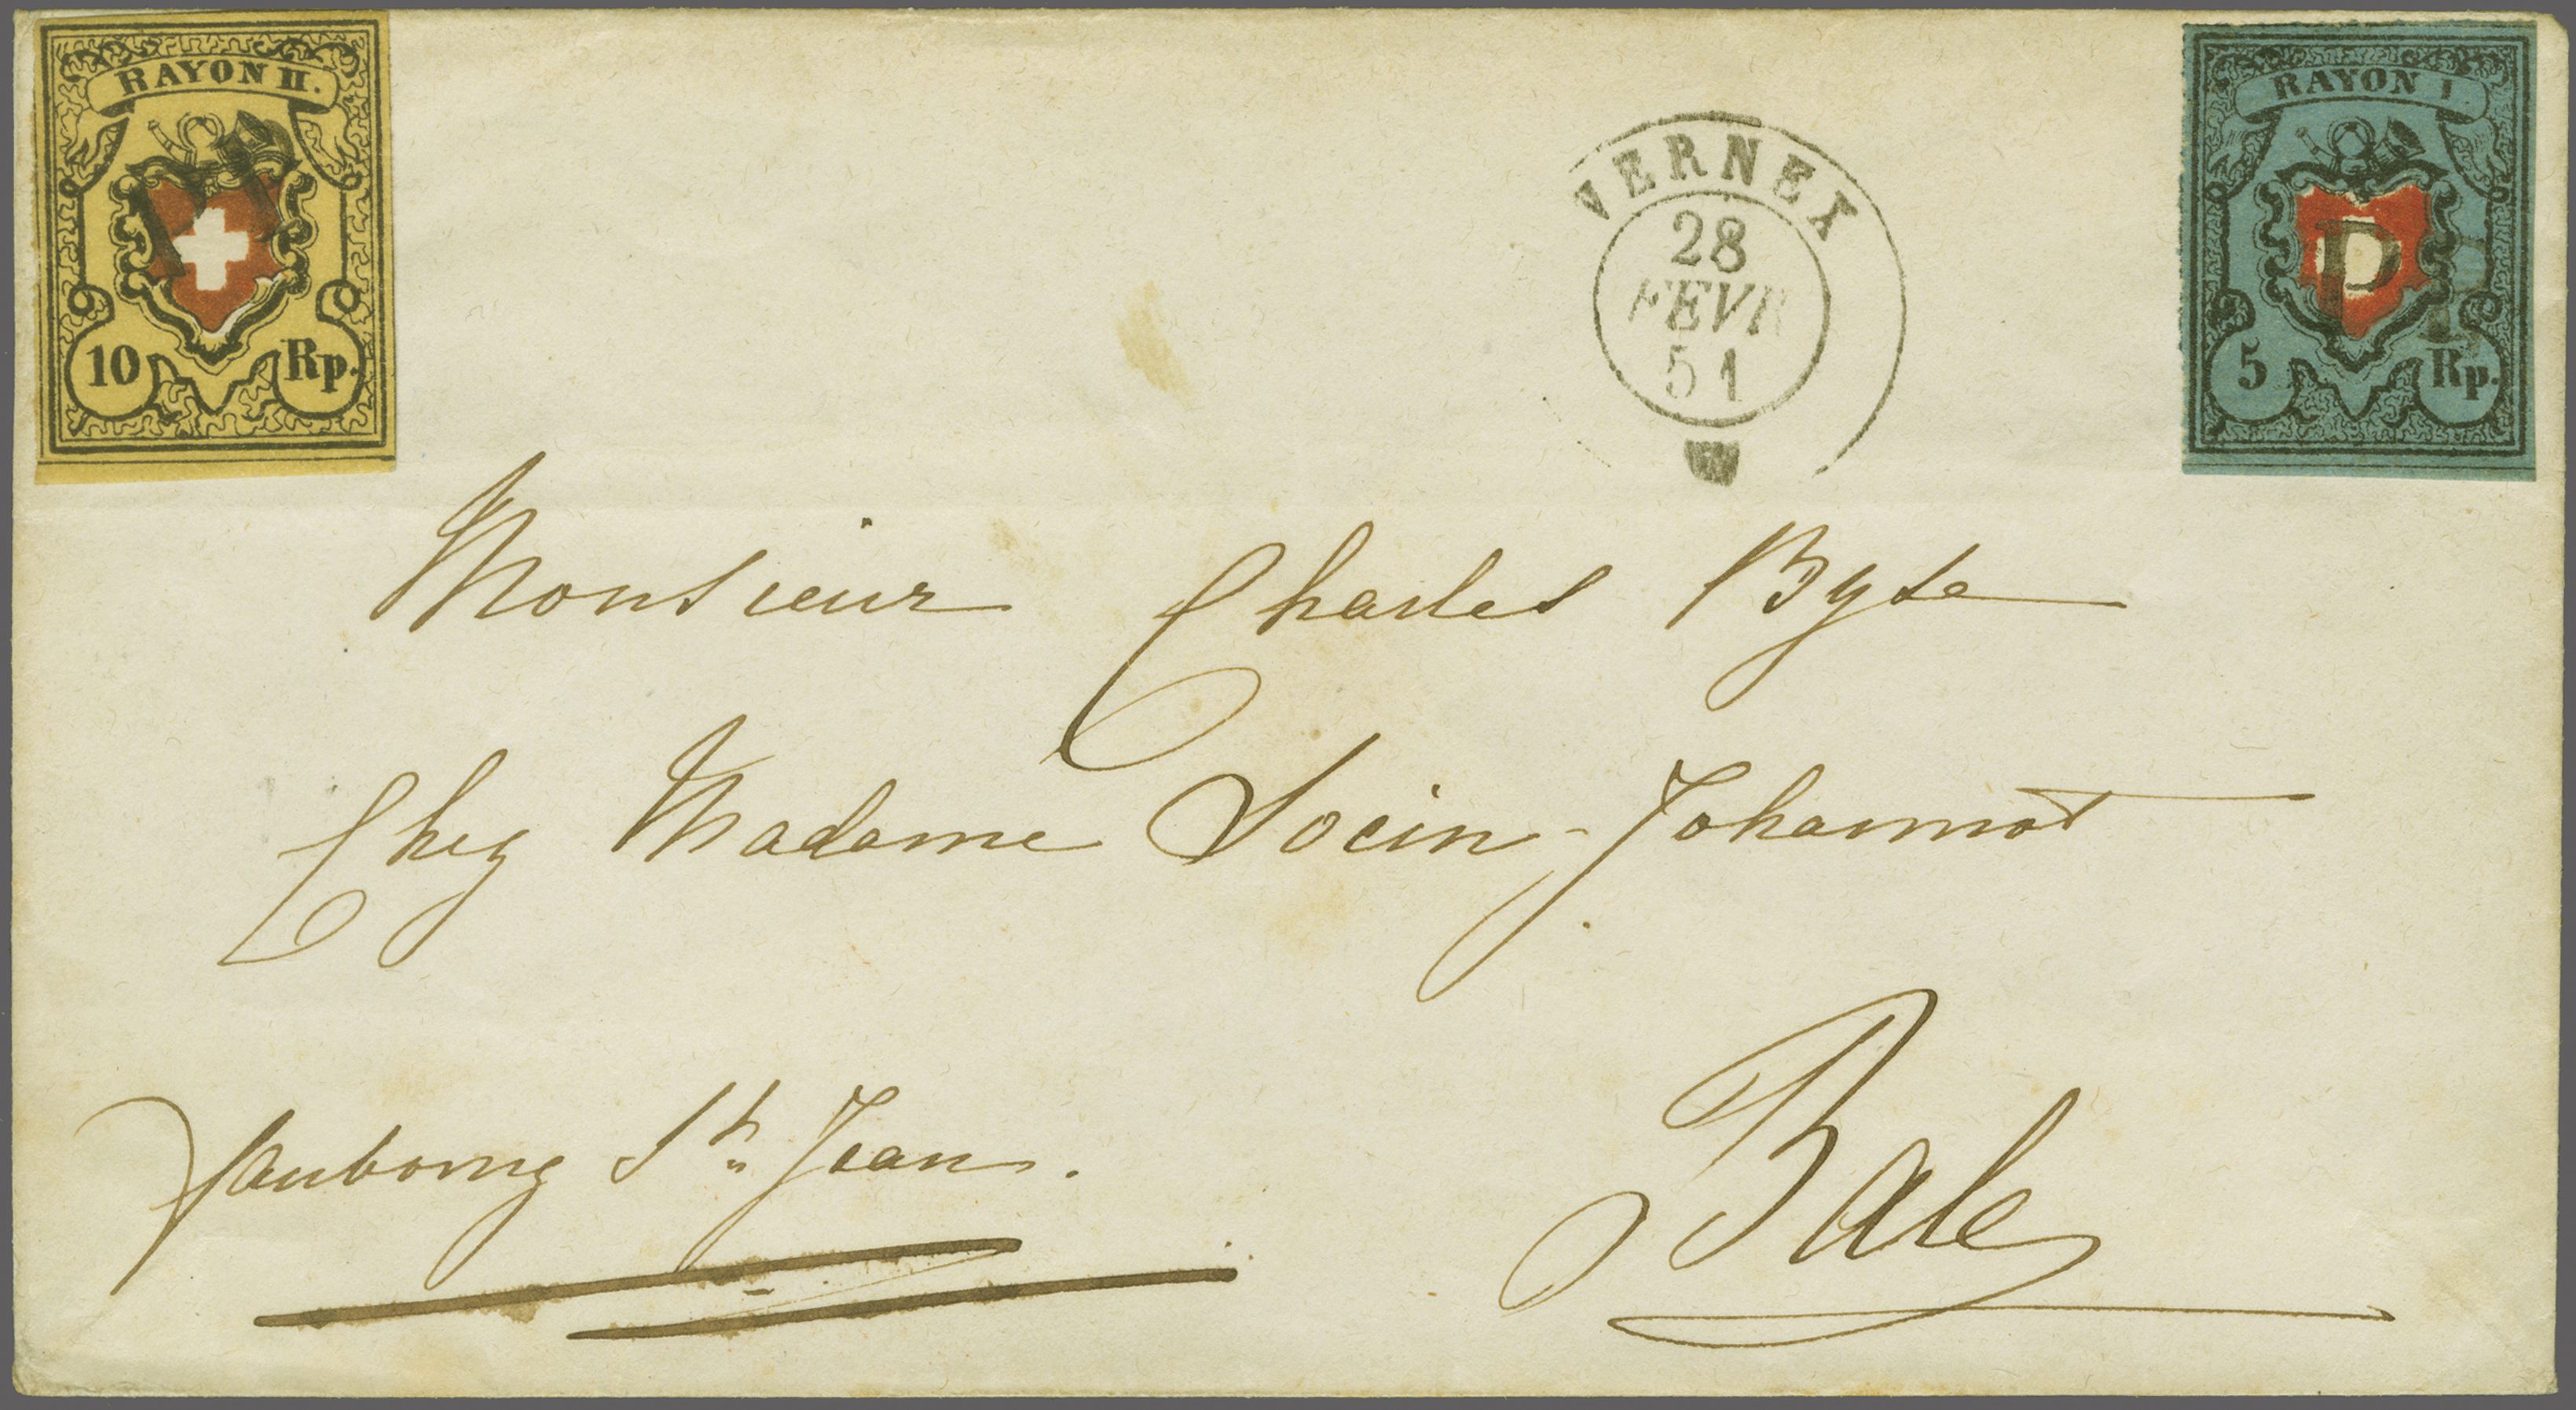 RAYON II.
10 Rp.
PP
VERNEX
28
FEVR
51
RAYON I.
5 Rp.
P.P.
Monsieur Charles Byse
Chez Madame Socin-Johannot
Faubourg St. Jean.
Bale